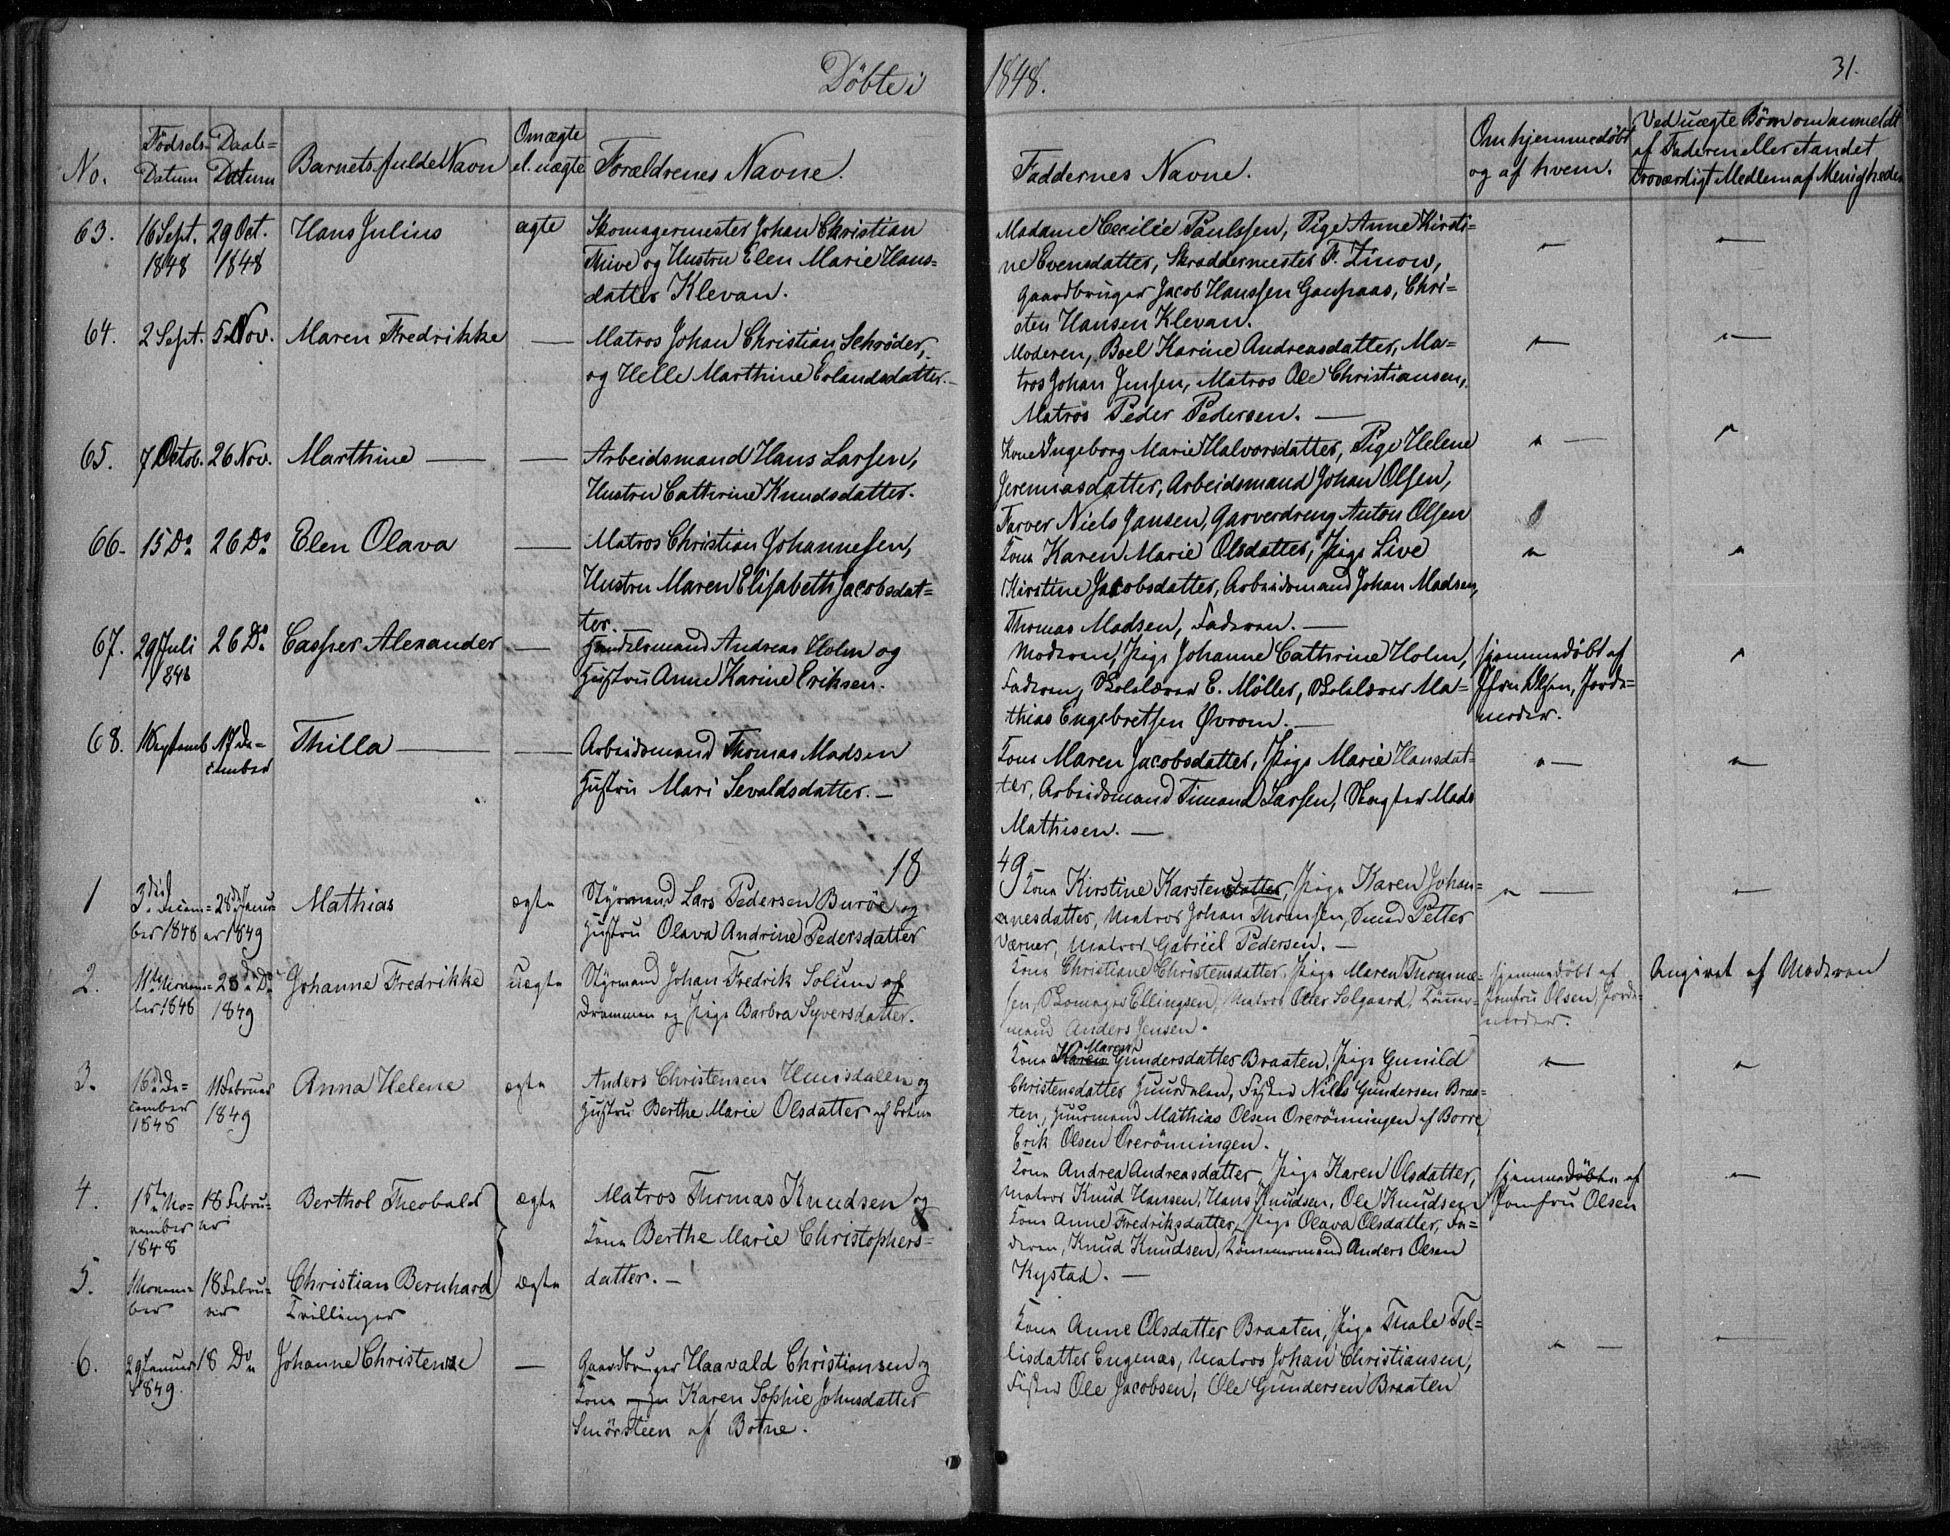 Døbte i 1848.
31.
No.
Fødsels-
Datum
Daabs=
Datum
Barnets fulde Navn
Om ægte
el. uægte
Forældrenes Navne.
Faddernes Navne.
Om hjemmedøbt
og af hvem.
Ved uægte Børn om anmeldt
af Faderen eller et andet
troværdigt Medlem af Menigheden
63.
16 Sept.
1848
29 Oct.
1848
Hans Julius
ægte
Skomagermester Johan Christian
Thive og Hustru Elen Marie Hans=
datter Klevan.
Madame Cecilie Paulssen, Pige Anne Kirsti=
ne Evensdatter, Skräddermester P. Zinow,
Gaardbruger Jacob Hanssen Gaupaas, Chri=
sten Hansen Klevan.
64.
2 Sept.
5 Nov.
Maren Fredrikke
—
Matros Johan Christian Schrøder,
og Helle Marthine Erlandsdatter.
Moderen, Boel Karine Andreasdatter, Ma=
tros Johan Jensen, Matros Ole Christiansen,
Matros Peder Pedersen. —
65.
7 Octob.
26 Nov.
Marthine —
—
Arbeidsmand Hans Larsen,
Hustru Cathrine Knudsdatter.
Kone Ingeborg Marie Halvorsdatter, Pige Helene
Jeremiasdatter, Arbeidsmand Johan Olsen,
Farver Niels Jansen, Garverdreng Anton Olsen
66.
15 Do.
26 Do.
Elen Olava
—
Matros Christian Johannesen,
Hustru Maren Elisabeth Jacobsdat=
ter.
Kone Karen Marie Olsdatter, Pige Live
Kirstine Jacobsdatter, Arbeidsmand Johan Madsen,
Thomas Madsen, Faderen. —
67.
29 Juli
1848
26 Do.
Casper Alexander
—
Handelsmand Andreas Holm og
Hustru Anne Karine Eriksen.
Moderen, Pige Johanne Cathrine Holm,
Faderen, Skolelærer E. Møller, Skolelærer Ma=
thias Engebretsen Øvrom. —
hjemmedøbt af
Jfru Olsen, Jorde=
moder.
68.
17 De=
cember
Thilla —
—
Arbeidsmand Thomas Madsen
Hustru Mari Sevaldsdatter. —
Kone Maren Jacobsdatter, Pige Marie Hansdat=
ter, Arbeidsmand Timand Larsen, Slagter Mads
Mathisen. —
1849
1
3die Decem=
ber 1848
28de Janu=
ar 1849
Mathias
ægte
Styrmand Lars Pedersen Burøe og
Hustru Olava Andrine Pedersdatter
Kone Kirstine Karstensdatter, Pige Karen Johan=
nesdatter, Matros Johan Thomsen, Smed Petter
Værner, Matros Gabriel Pedersen. —
2.
11te Novem=
ber 1848
28de Do.
1849
Johanne Fredrikke
uægte
Styrmand Johan Fredrik Solum af
Drammen og Pige Barbra Syversdatter.
Kone Christiane Christensdatter, Pige Maren Thomme=
sen, Skomager Ellingsen, Matros Peter Solgaard, Tømmer=
mand Anders Jensen.
hjemmedøbt af
Jomfru Olsen Jorde=
moder.
Angivet af Moderen
3.
16de De=
cember
1848
11 Februar
1849
Anna Helene
ægte
Anders Christensen Huusdalen og
Hustru Berthe Marie Olsdatter af Botne
Kone Karen Maren Gundersdatter Braaten, Pige Gunild
Christensdatter Huusdalen, Fisker Niels Gundersen Braa=
ten, Huusmand Mathias Olsen Orerönningen af Borre,
Erik Olsen Orerönningen.
4.
15te No=
vember
1848
18 Febru=
ar
Berthol Theobald
ægte
Matros Thomas Knudsen og
Kone Berthe Marie Christophers=
datter. —
Kone Andrea Andreasdatter, Pige Karen Olsdatter,
Matros Knud Hansen, Hans Knudsen, Ole Knudsen
hjemmedøbte af
Jomfru Olsen
5.
Novem=
ber
18 Febru=
ar
Christian Bernhard
Tvillinger
ægte
Kone Anne Fredriksdatter, Pige Olava Olsdatter, Fa=
deren, Knud Knudsen, Tømmermand Anders Olsen
Kystad. —
6.
29 Januar
1849.
18 Do.
Johanne Christense
—
Gaardbruger Haavald Christiansen og
Kone Karen Sophie Johnsdatter
Smörsteen af Botne.
Kone Anne Olsdatter Braaten, Pige Thale Tol=
lisdatter Engenas, Matros Johan Christiansen,
Fisker Ole Jacobsen, Ole Gundersen Braaten